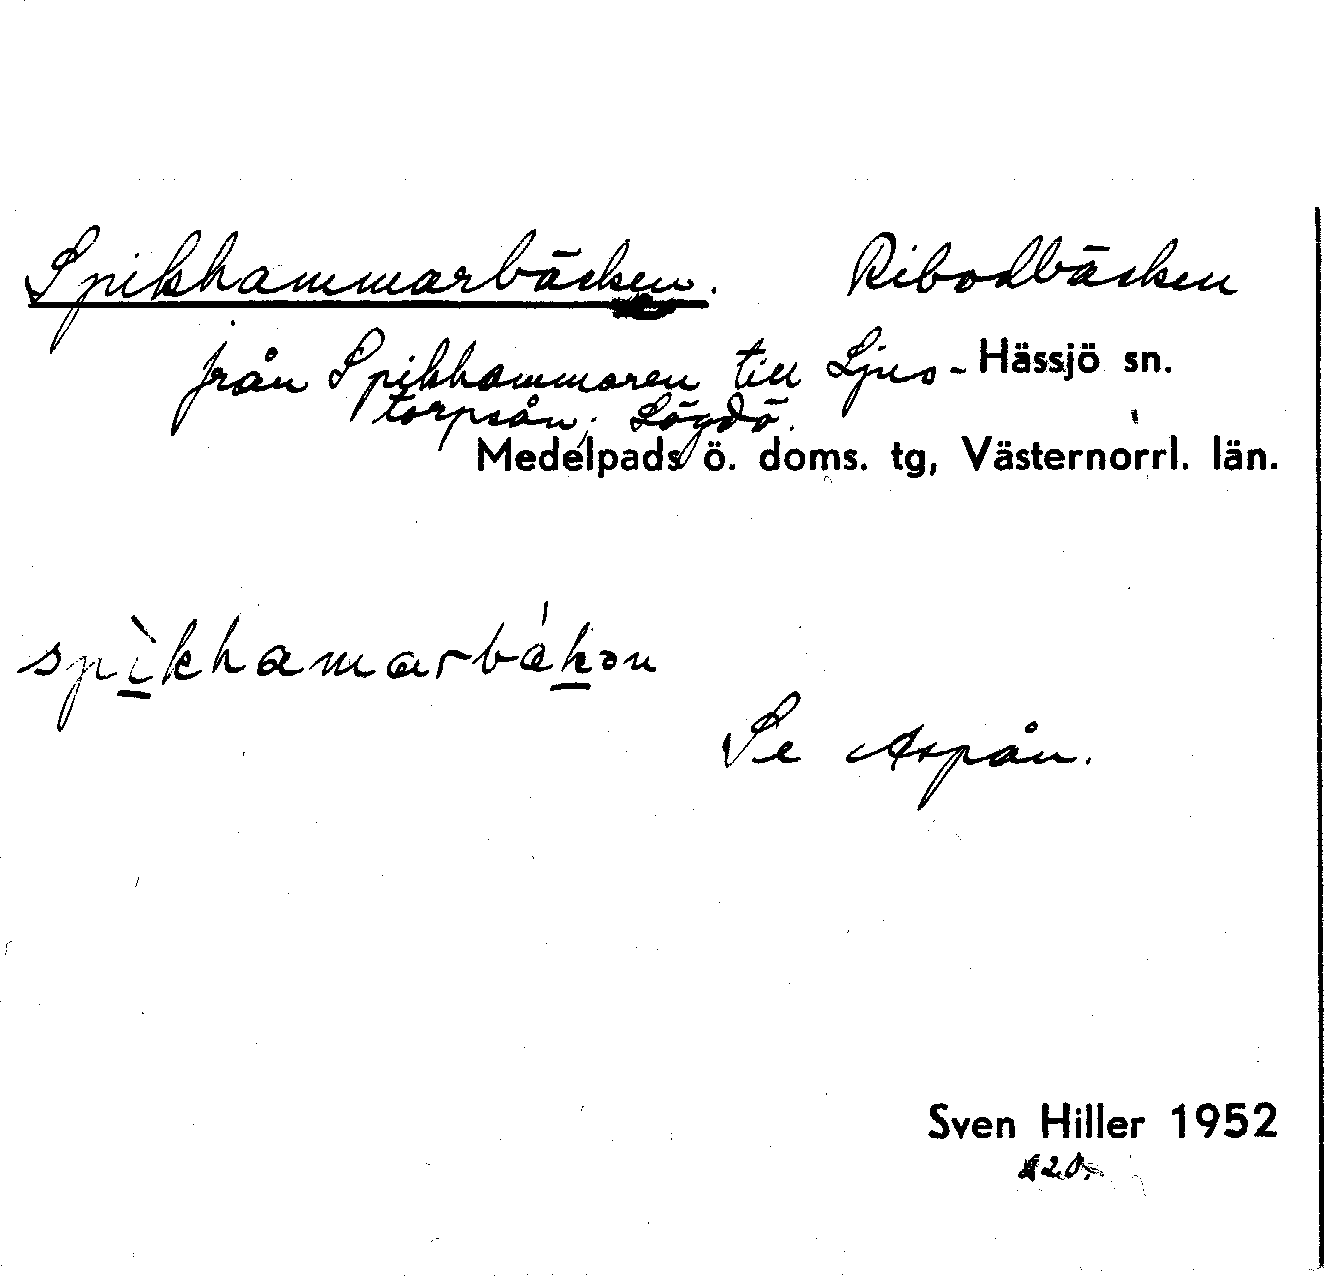 Spikhammarbäcken. Ribodbäcken
från Spikhammaren till Ljus- Hässjö sn.
torpsån; Lögdö.
Medelpads ö. doms. tg, Västernorrl. län.
spìkhamarbákən
Se Aspån.
Sven Hiller 1952